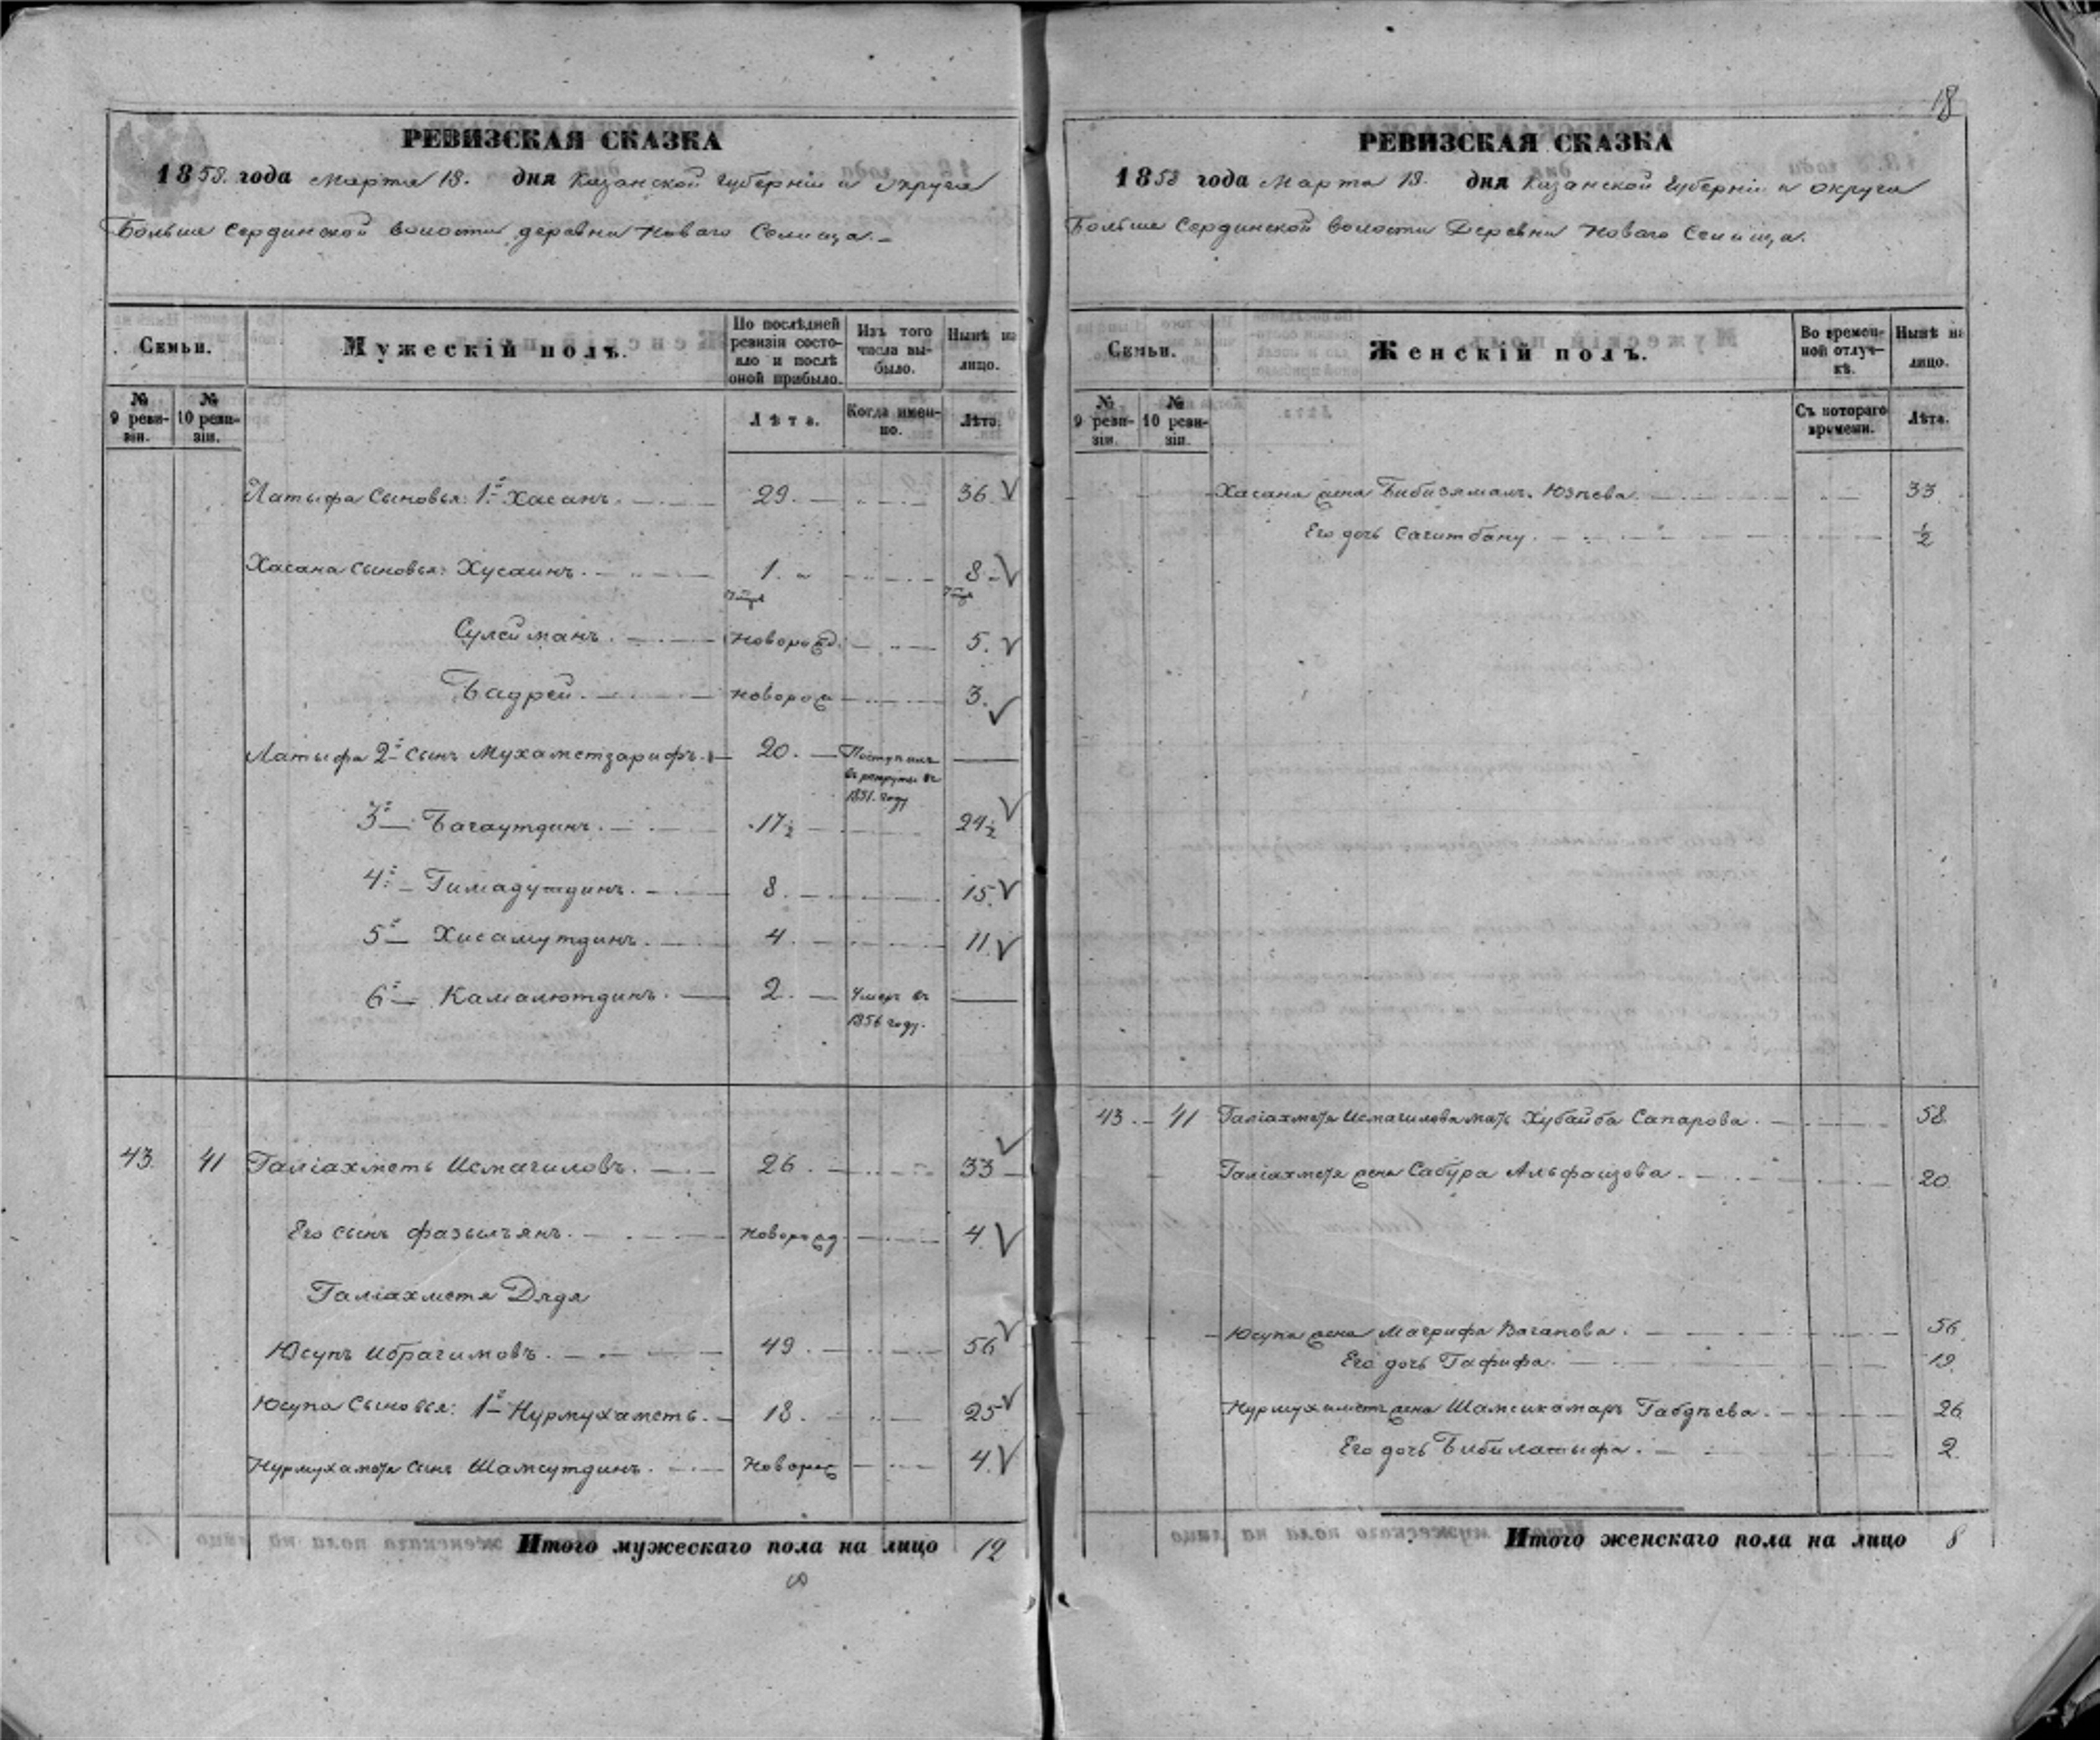 18
РЕВИЗСКАЯ СКАЗКА
1858. года Марта 18. дня Казанской Губерніи и Округа
Больше Сердинской волости деревни Новаго Селища.
Семьи.
Мужескій полъ.
По послѣдней ревизіи состояло и послѣ оной прибыло.
Изъ того числа выбыло.
Нынѣ на лицо.
№ 9 ревизіи.
№ 10 ревизіи.
Лѣта.
Когда именно.
Лѣта.
Латыфа Сыновья: 1й Хасанъ. 29. 36. V
Хасана Сыновья: Хусаинъ. 1. 8. V
Сулейманъ. Новорожд. 5. V
Бадрей. Новорож 3. V
Латыфа 2й сынъ Мухаметзарифъ. 20. Поступилъ въ рекруты въ 1851. году
3й Багаутдинъ. 17½ 24½ V
4й Гимадутдинъ. 8. 15. V
5й Хисамутдинъ. 4. 11. V
6й Камалютдинъ. 2. Умеръ въ 1856 году.
43. 41 Галіахметъ Исмагиловъ. 26. 33 V
Его сынъ Фазылъянъ. Новорожд 4. V
Галіахметя Дядя
Юсупъ Ибрагимовъ. 49. 56 V
Юсупа Сыновья: 1й Нурмухаметъ. 18. 25 V
Нурмухаметя сынъ Шамсутдинъ. Новорож 4. V
Итого мужескаго пола на лицо 12
РЕВИЗСКАЯ СКАЗКА
1858 года Марта 18. дня Казанской Губерніи и округа
Больше Сердинской волости Деревни Новаго Селища.
Семьи.
Женскій полъ.
Во временной отлучкѣ.
Нынѣ на лицо.
№ 9 ревизіи.
№ 10 ревизіи.
Съ котораго времени.
Лѣта.
Хасана жена Бибизямалъ Юзѣева 33.
Его дочь Сагитбану. ½
43. 41 Галіахметя Исмагилова мать Хубайба Сапарова. 58.
Галіахметя жена Сабура Альфаизова. 20.
Юсупа жена Магрифа Вагапова. 56.
Его дочь Гафифа. 19.
Нурмухаметя жена Шамсикамаръ Габдѣева. 26.
Его дочь Бибилатыфа. 2.
Итого женскаго пола на лицо 8